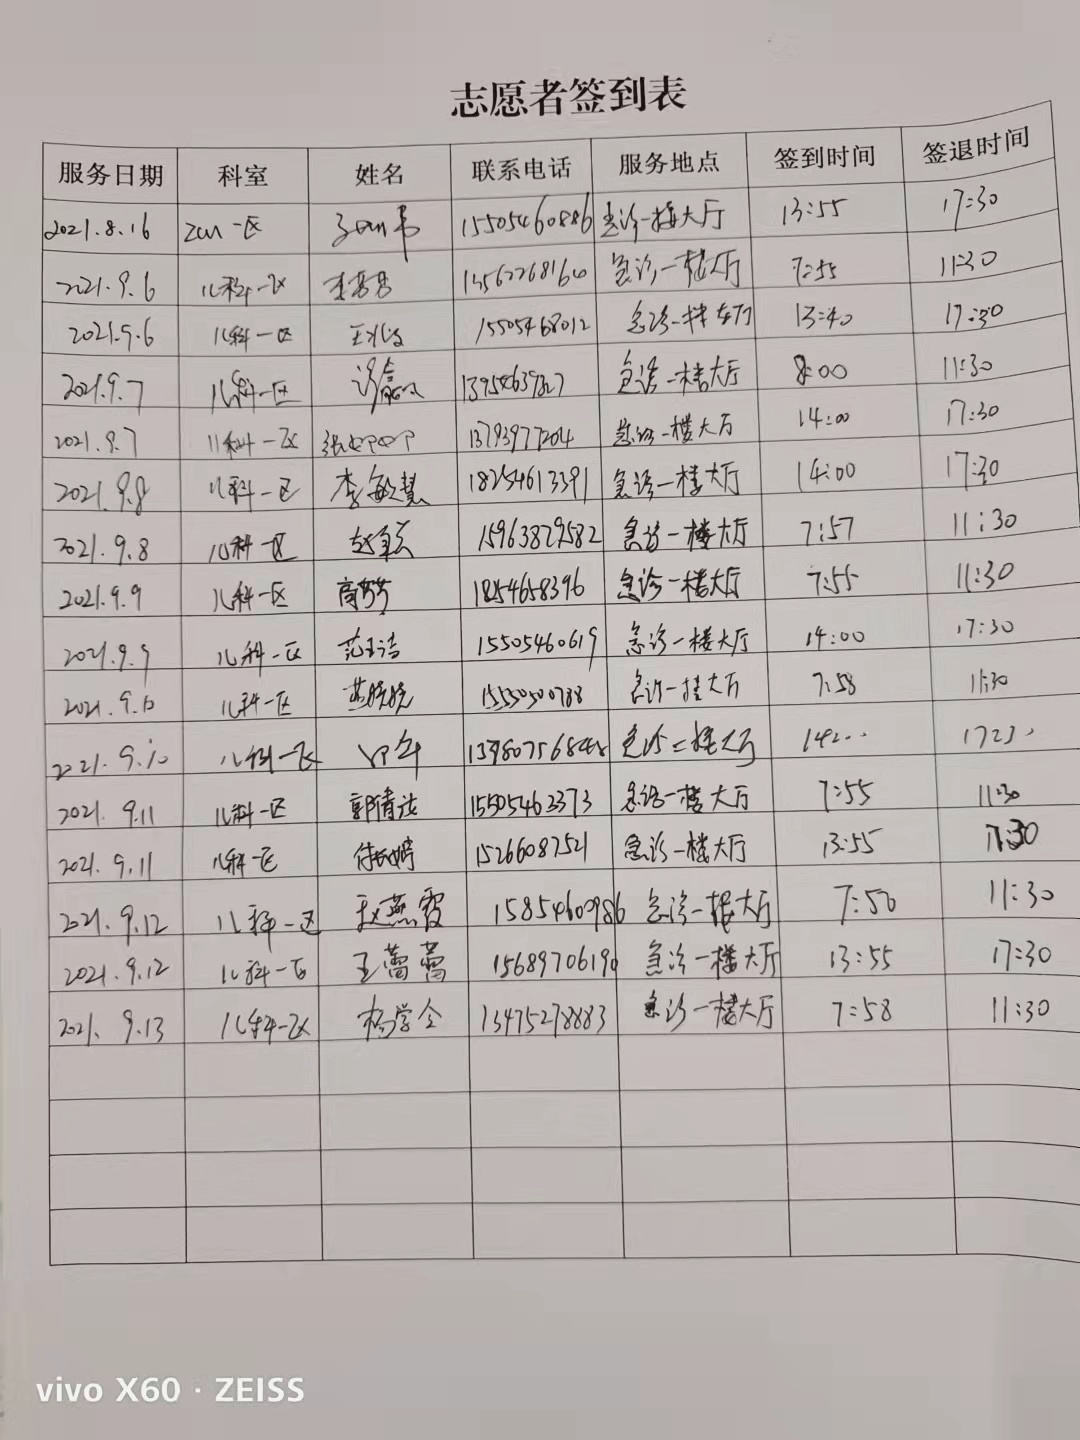 志愿者签到表
服务日期 科室 姓名 联系电话 服务地点 签到时间 签退时间
2021.8.16 一区 15505460886 急诊一楼大厅 13:55 17:30
2021.9.6 儿科一区 急诊一楼大厅 7:55 11:30
2021.9.6 儿科一区 15505468012 急诊一楼大厅 13:40 17:30
2021.9.7 儿科一区 急诊一楼大厅 8:00 11:30
2021.9.7 儿科一区 13793977204 急诊一楼大厅 14:00 17:30
2021.9.8 儿科一区 李敏慧 18254613391 急诊一楼大厅 14:00 17:30
2021.9.8 儿科一区 15963879582 急诊一楼大厅 7:57 11:30
2021.9.9 儿科一区 高芳芳 18254658396 急诊一楼大厅 7:55 11:30
2021.9.9 儿科一区 范玉洁 15505460619 急诊一楼大厅 14:00 17:30
2021.9.10 儿科一区 急诊一楼大厅 7:58 11:30
2021.9.10 儿科一区 大厅
2021.9.11 儿科一区 15505462373 急诊一楼大厅 7:55 11:30
2021.9.11 儿科一区 15266087521 急诊一楼大厅 13:55 17:30
2021.9.12 儿科一区 赵燕霞 15854600986 急诊一楼大厅 7:50 11:30
2021.9.12 儿科一区 王蕾蕾 15689706190 急诊一楼大厅 13:55 17:30
2021.9.13 儿科一区 杨学全 13475278883 急诊一楼大厅 7:58 11:30
vivo X60 · ZEISS